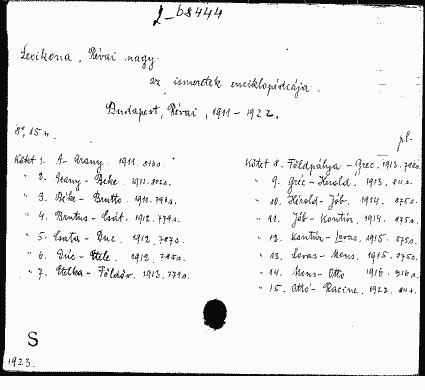 L-b8444
Lexikona, Révai nagy
az ismeretek enciklopédiája.
Budapest, Révai, 1911-1922.
8°, 15 k.
pl.
Kötet 1. A - Arany. 1911.
" 2. Arany - Béke. 1911.
" 3. Béke - Brutto. 1911.
" 4. Brutus - Csát. 1912. 779 s.
" 5. Csata - Duc. 1912. 787 s.
" 6. Dúc - Etele. 1912.
" 7. Etelka - Földöv. 1913.
Kötet 8. Földpálya - Grec. 1913.
" 9. Gréc - Herold. 1913.
" 10. Hérold - Jób. 1914. 875 s.
" 11. Jób - Kontúr. 1914. 875 s.
" 12. Kontúr - Lovas. 1915. 875 s.
" 13. Lovas - Mons. 1915. 875 s.
" 14. Mons - Ottó 1916. 916 s.
" 15. Ottó - Racine. 1922.
S
1923.